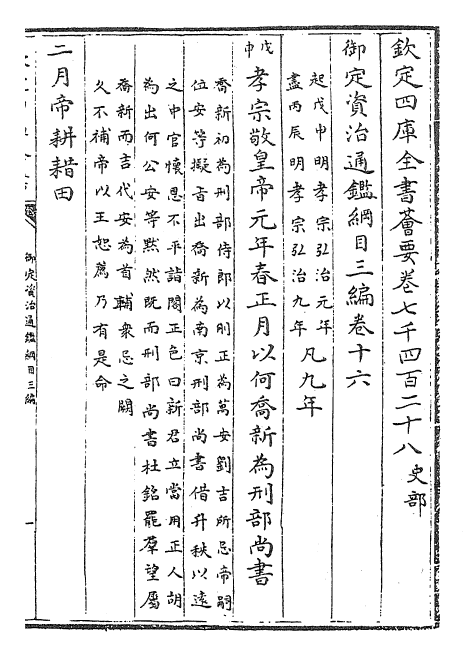 欽定四庫全書薈要卷七千四百二十八史部
御定資治通鑑綱目三編卷十六
起戊申明孝宗弘治元年
盡丙辰明孝宗弘治九年
凡九年
戊申
孝宗敬皇帝元年春正月以何喬新為刑部尚書
喬新初為刑部侍郎以剛正為萬安劉吉所忌帝嗣
位安等擬旨出喬新為南京刑部尚書借升秩以遠
之中官懷恩不平詣閣正色曰新君立當用正人胡
為出何公安等默然既而刑部尚書杜銘罷羣望屬
喬新而吉代安為首輔衆忌之闕
久不補帝以王恕薦乃有是命
二月帝耕耤田
御定資治通鑑綱目三編
一